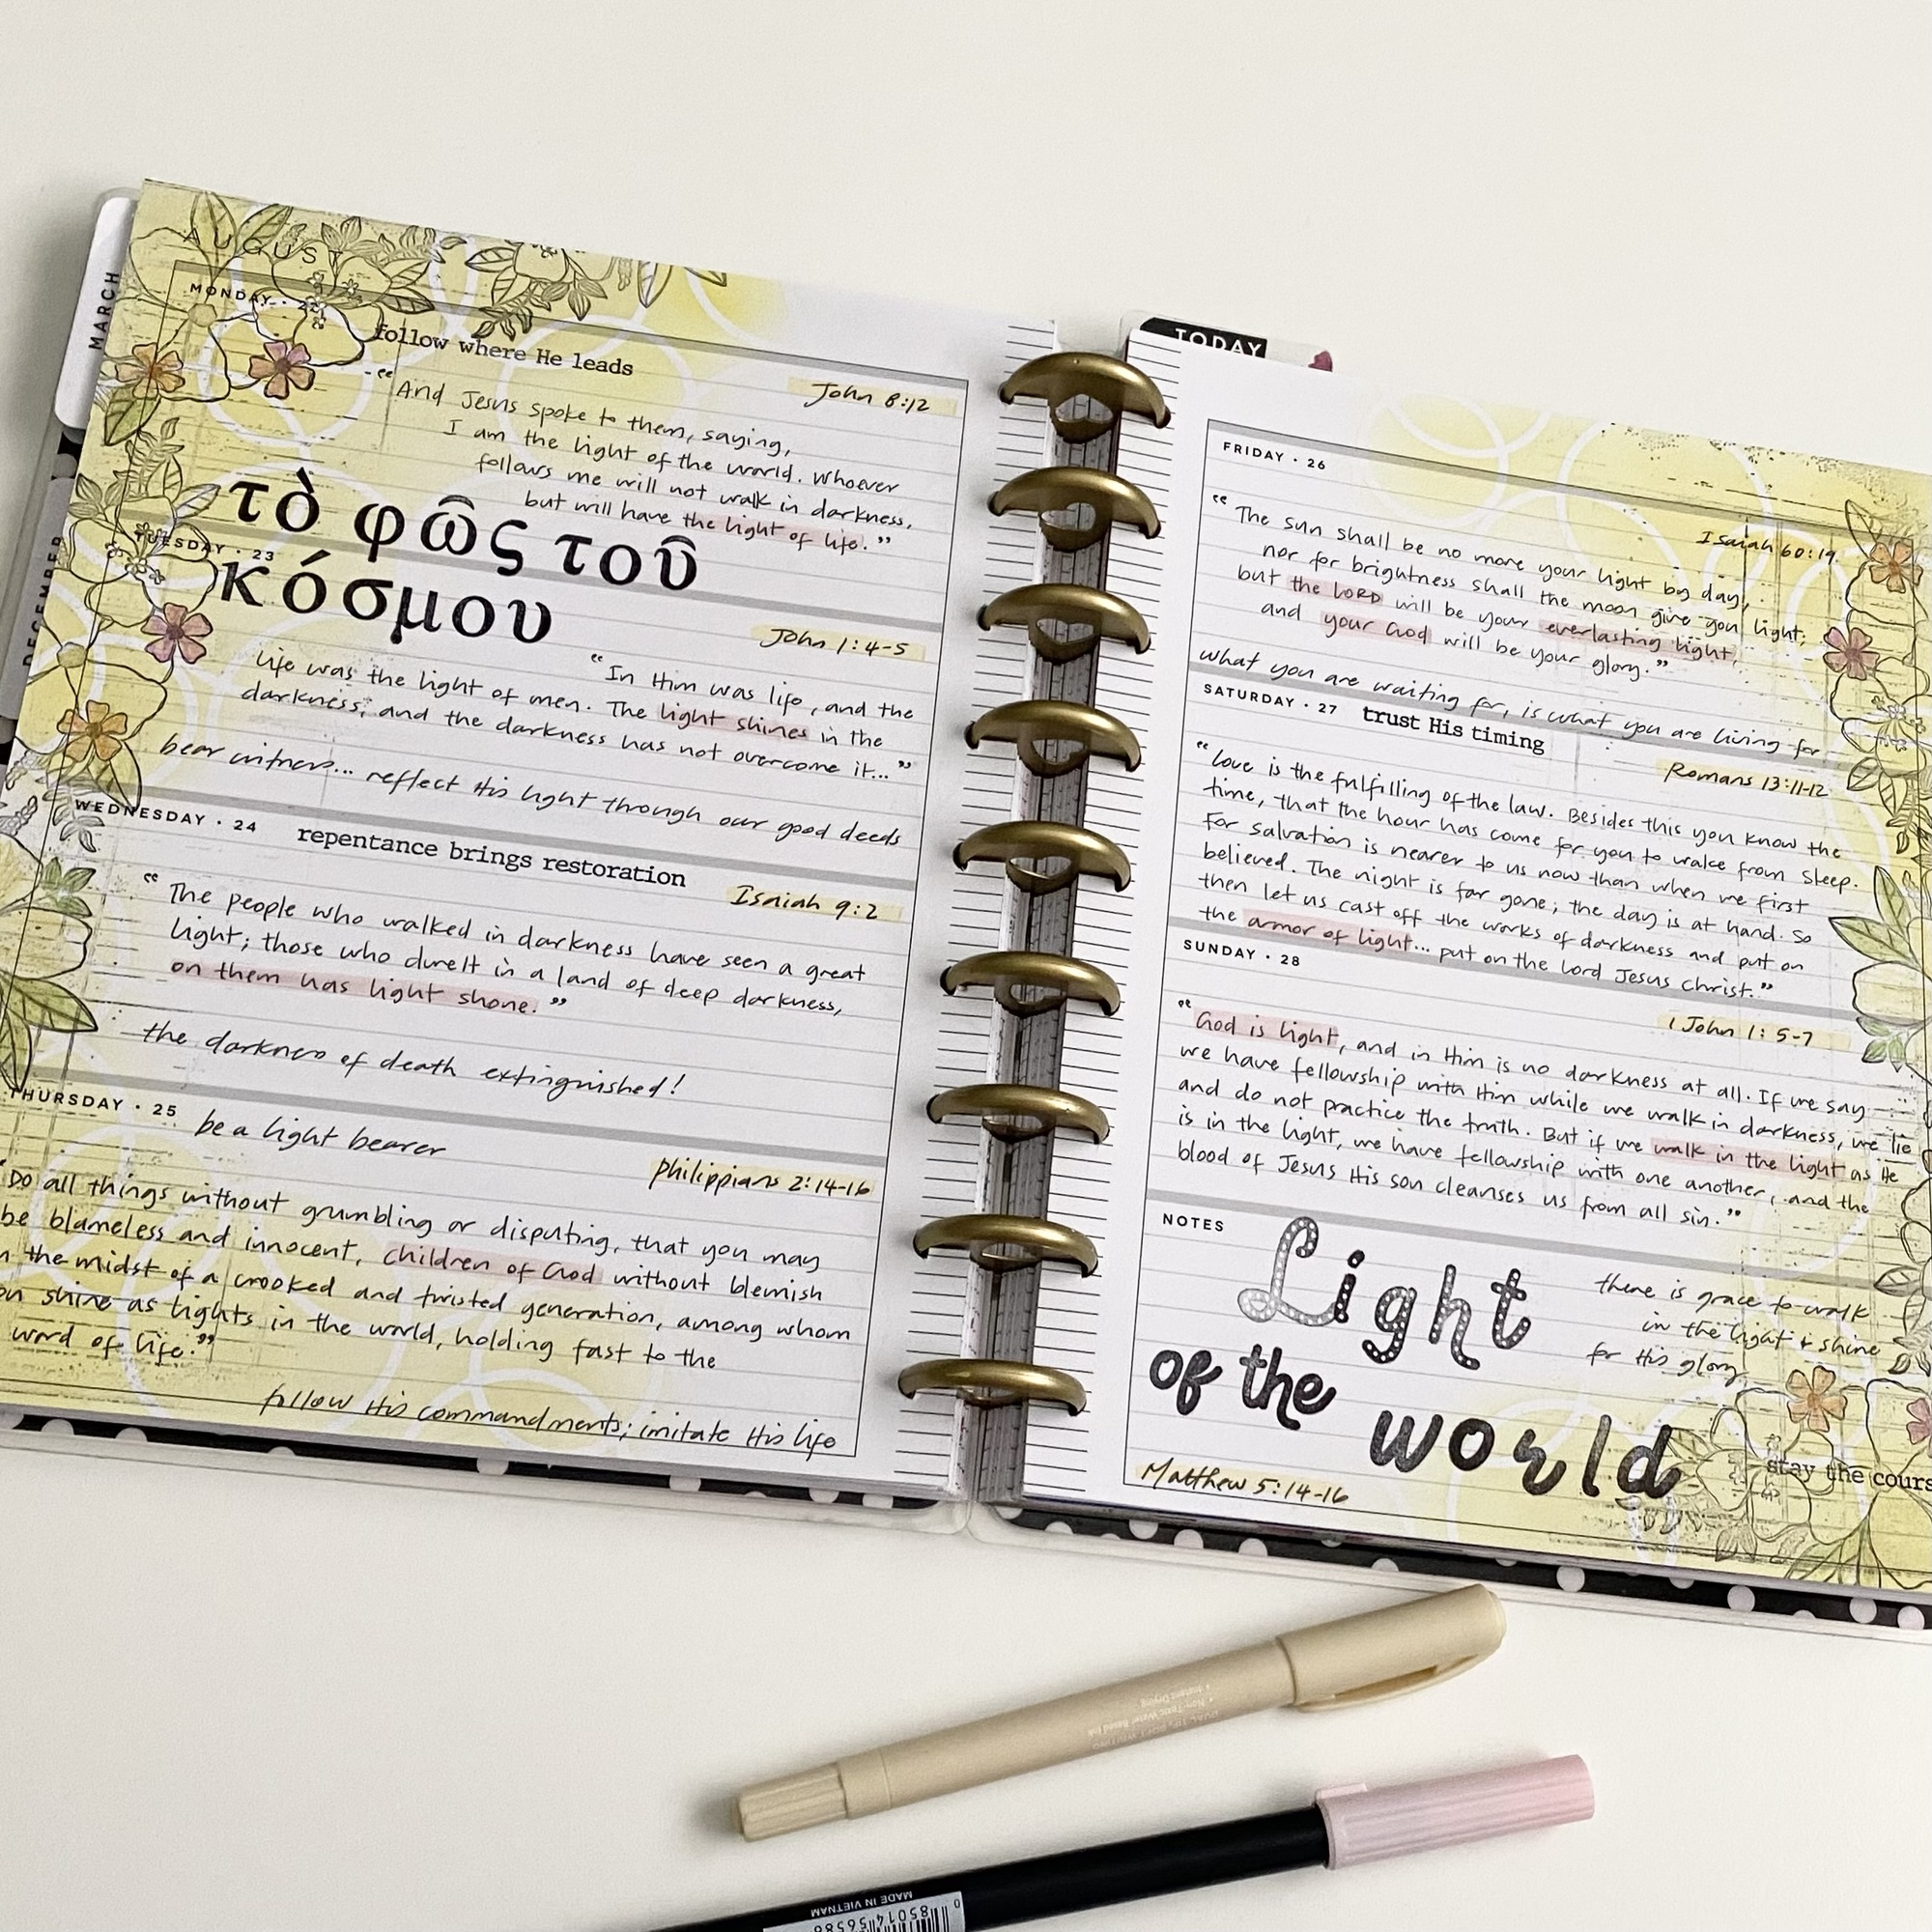 MARCH
DECEMBER
AUGUST
MONDAY · 22
follow where He leads
John 8:12
"And Jesus spoke to them, saying,
I am the light of the world. Whoever
follows me will not walk in darkness,
but will have the light of life."
τὸ φῶς τοῦ
κόσμου
TUESDAY · 23
John 1:4-5
"In Him was life, and the
life was the light of men. The light shines in the
darkness, and the darkness has not overcome it..."
bear witness... reflect His light through our good deeds
WEDNESDAY · 24
repentance brings restoration
Isaiah 9:2
"The people who walked in darkness have seen a great
light; those who dwelt in a land of deep darkness,
on them has light shone."
the darkness of death extinguished!
THURSDAY · 25
be a light bearer
Philippians 2:14-16
"Do all things without grumbling or disputing, that you may
be blameless and innocent, children of God without blemish
the midst of a crooked and twisted generation, among whom
shine as lights in the world, holding fast to the
word of life."
follow His commandments; imitate His life
TODAY
FRIDAY · 26
Isaiah 60:19
"The sun shall be no more your light by day,
nor for brightness shall the moon give you light;
but the LORD will be your everlasting light,
and your God will be your glory."
what you are waiting for, is what you are living for
SATURDAY · 27
trust His timing
Romans 13:11-12
"Love is the fulfilling of the law. Besides this you know the
time, that the hour has come for you to wake from sleep.
For salvation is nearer to us now than when we first
believed. The night is far gone; the day is at hand. So
then let us cast off the works of darkness and put on
the armor of light... put on the Lord Jesus Christ."
SUNDAY · 28
1 John 1:5-7
"God is light, and in Him is no darkness at all. If we say
we have fellowship with Him while we walk in darkness, we lie
and do not practice the truth. But if we walk in the light as He
is in the light, we have fellowship with one another, and the
blood of Jesus His son cleanses us from all sin."
NOTES
Light
of the
world
there is grace to walk
in the light & shine
for His glory
Matthew 5:14-16
stay the cours
• Instant Drying
• Non-Toxic Water Based Ink
MADE IN VIETNAM